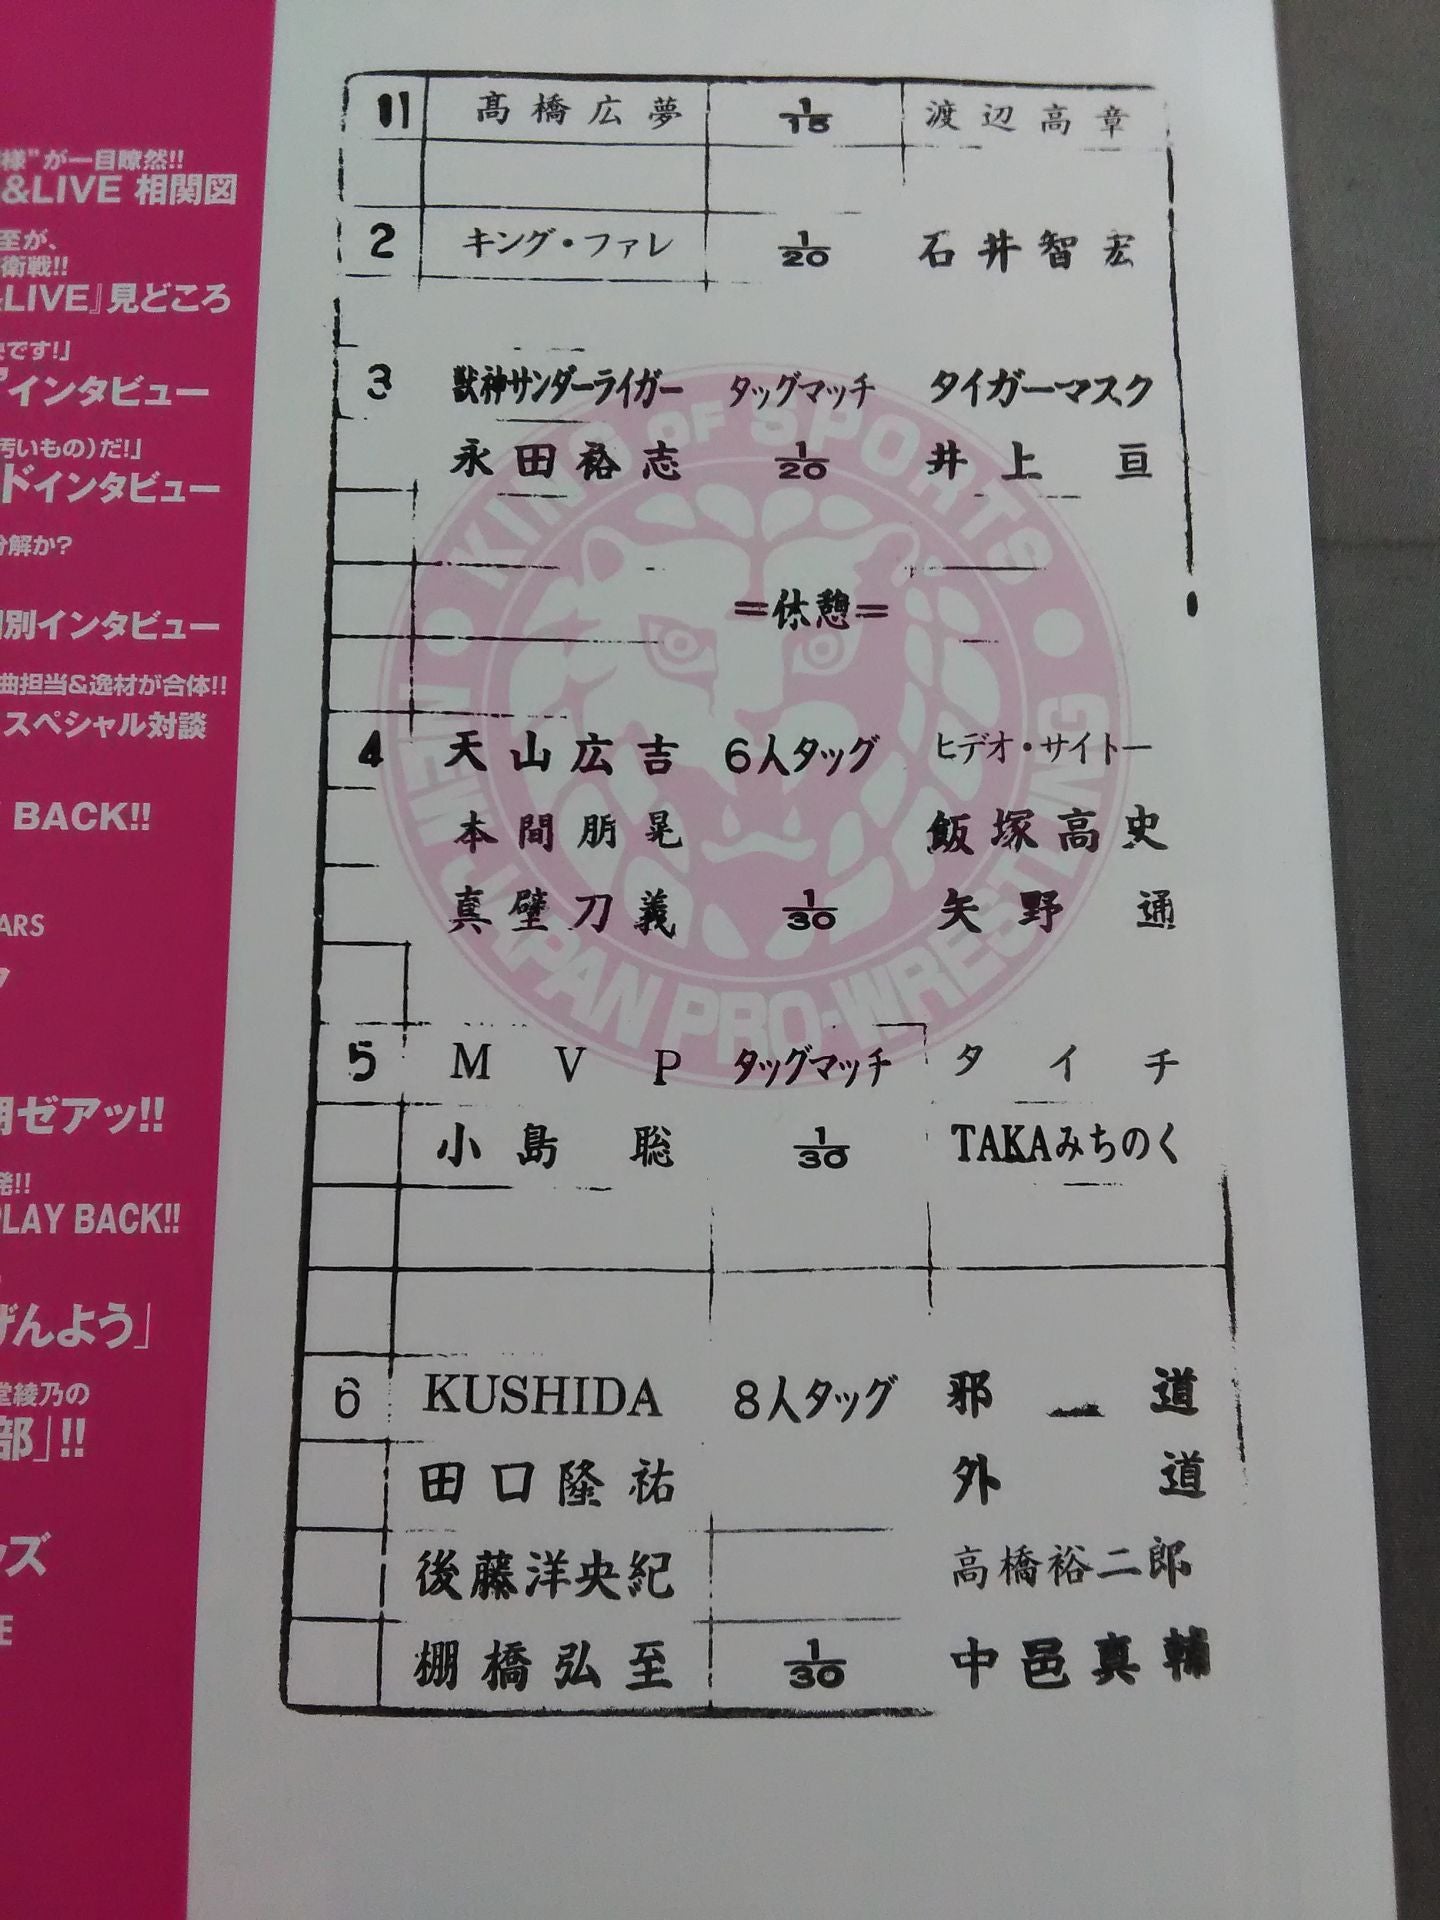 様"が一目瞭然!!
&LIVE 相関図
至が、
衛戦!!
&LIVE』見どころ
です!」
インタビュー
汚いもの)だ!」
ドインタビュー
分解か?
別インタビュー
曲担当&逸材が合体!!
スペシャル対談
BACK!!
ARS
ゼアッ!!
発!!
PLAY BACK!!
げんよう」
堂綾乃の
部」!!
ッズ
KING OF SPORTS
NEW JAPAN PRO-WRESTLING
11 髙橋広夢 1/15 渡辺高章
2 キング・ファレ 1/20 石井智宏
3 獣神サンダーライガー タッグマッチ タイガーマスク
永田裕志 1/20 井上亘
=休憩=
4 天山広吉 6人タッグ ヒデオ・サイトー
本間朋晃 飯塚高史
真壁刀義 1/30 矢野通
5 MVP タッグマッチ タイチ
小島聡 1/30 TAKAみちのく
6 KUSHIDA 8人タッグ 邪道
田口隆祐 外道
後藤洋央紀 高橋裕二郎
棚橋弘至 1/30 中邑真輔